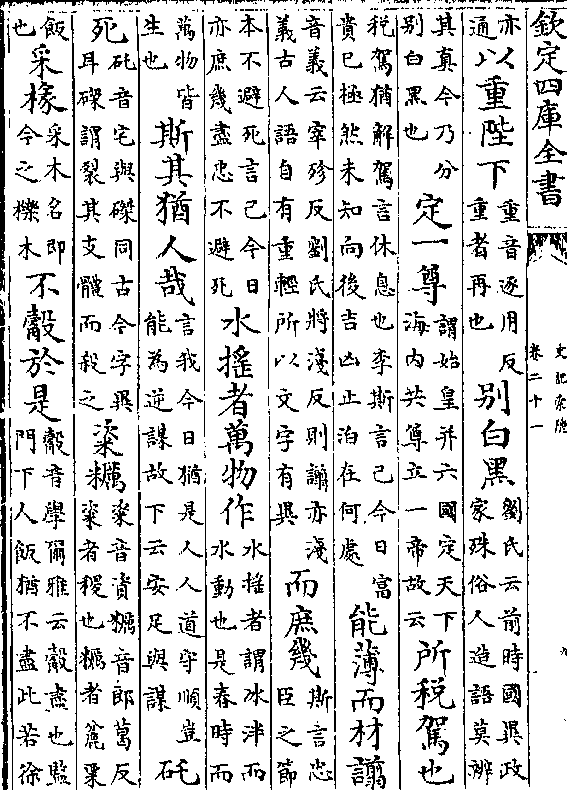 欽定四庫全書
史記索隱
卷二十一
九
亦通以重陛下重音逐用反重者再也别白黑劉氏云前時國異政家殊俗人造語莫辨
其真今乃分别白黑也定一尊謂始皇并六國定天下海内共尊立一帝故云所税駕也
税駕猶解駕言休息也李斯言己今日富貴已極然未知向後吉凶止泊在何處能薄而材譾
音義云宰殄反劉氏將淺反則譾亦淺義古人語自有重輕所以文字有異而庶幾斯言忠臣之節
本不避死言己今日亦庶幾盡忠不避死水搖者萬物作水搖者謂冰泮而水動也是春時而
萬物皆生也斯其猶人哉言我今日猶是人人道守順豈能為逆謀故下云安足與謀矺
死矺音宅與磔同古今字異耳磔謂裂其支體而殺之粢糲粢音資糲音郎葛反粢者稷也糲者麤粟
飯也采椽采木名即今之櫟木不觳於是觳音學爾雅云觳盡也監門下人飯猶不盡此若徐